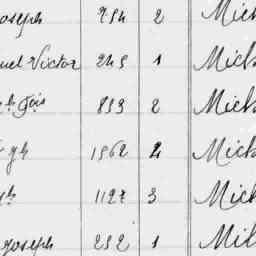 Joseph 754 2 Mich
uel Victor 245 1 Mich
ph Fois 853 2 Mich
1562 2 Mich
ph 1127 3 Mich
Joseph 252 1 Mil